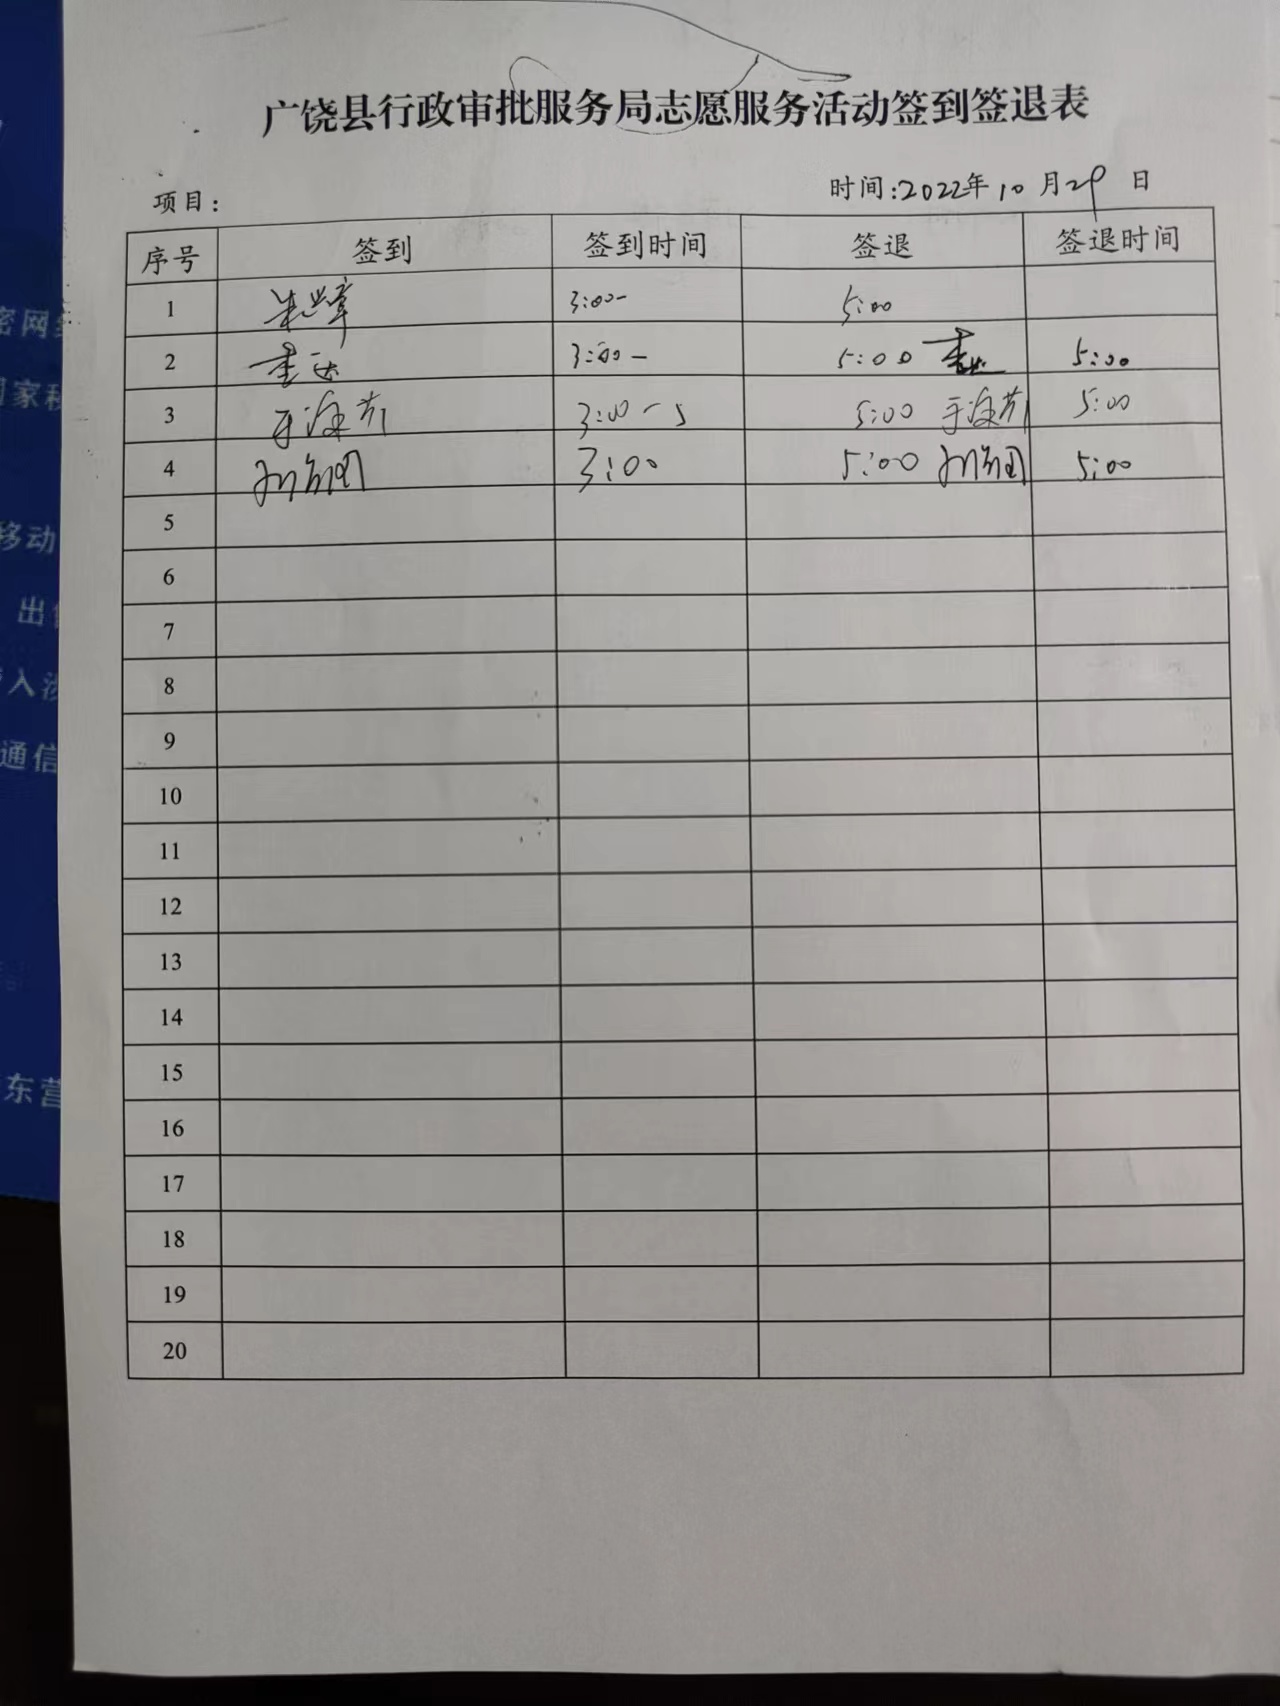 广饶县行政审批服务局志愿服务活动签到签退表
项目: 时间:2022年10月29日
序号 签到 签到时间 签退 签退时间
1 3:00- 5:00
2 3:00- 5:00 5:00
3 3:00-5 5:00 5:00
4 3:00 5:00 5:00
5
6
7
8
9
10
11
12
13
14
15
16
17
18
19
20
密网
国家
移动
出
入
通信
东营